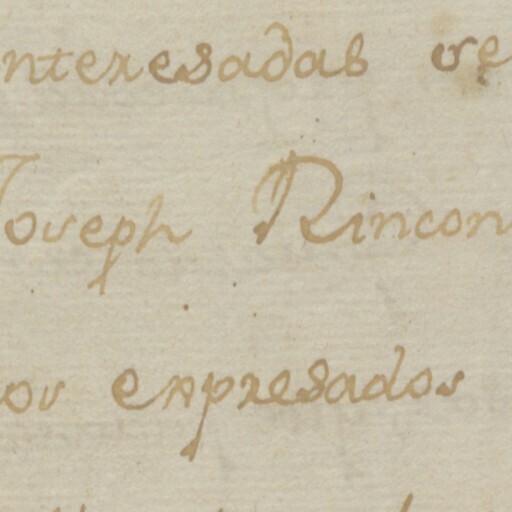 nteresadas se
Joseph Rincon
os expresados